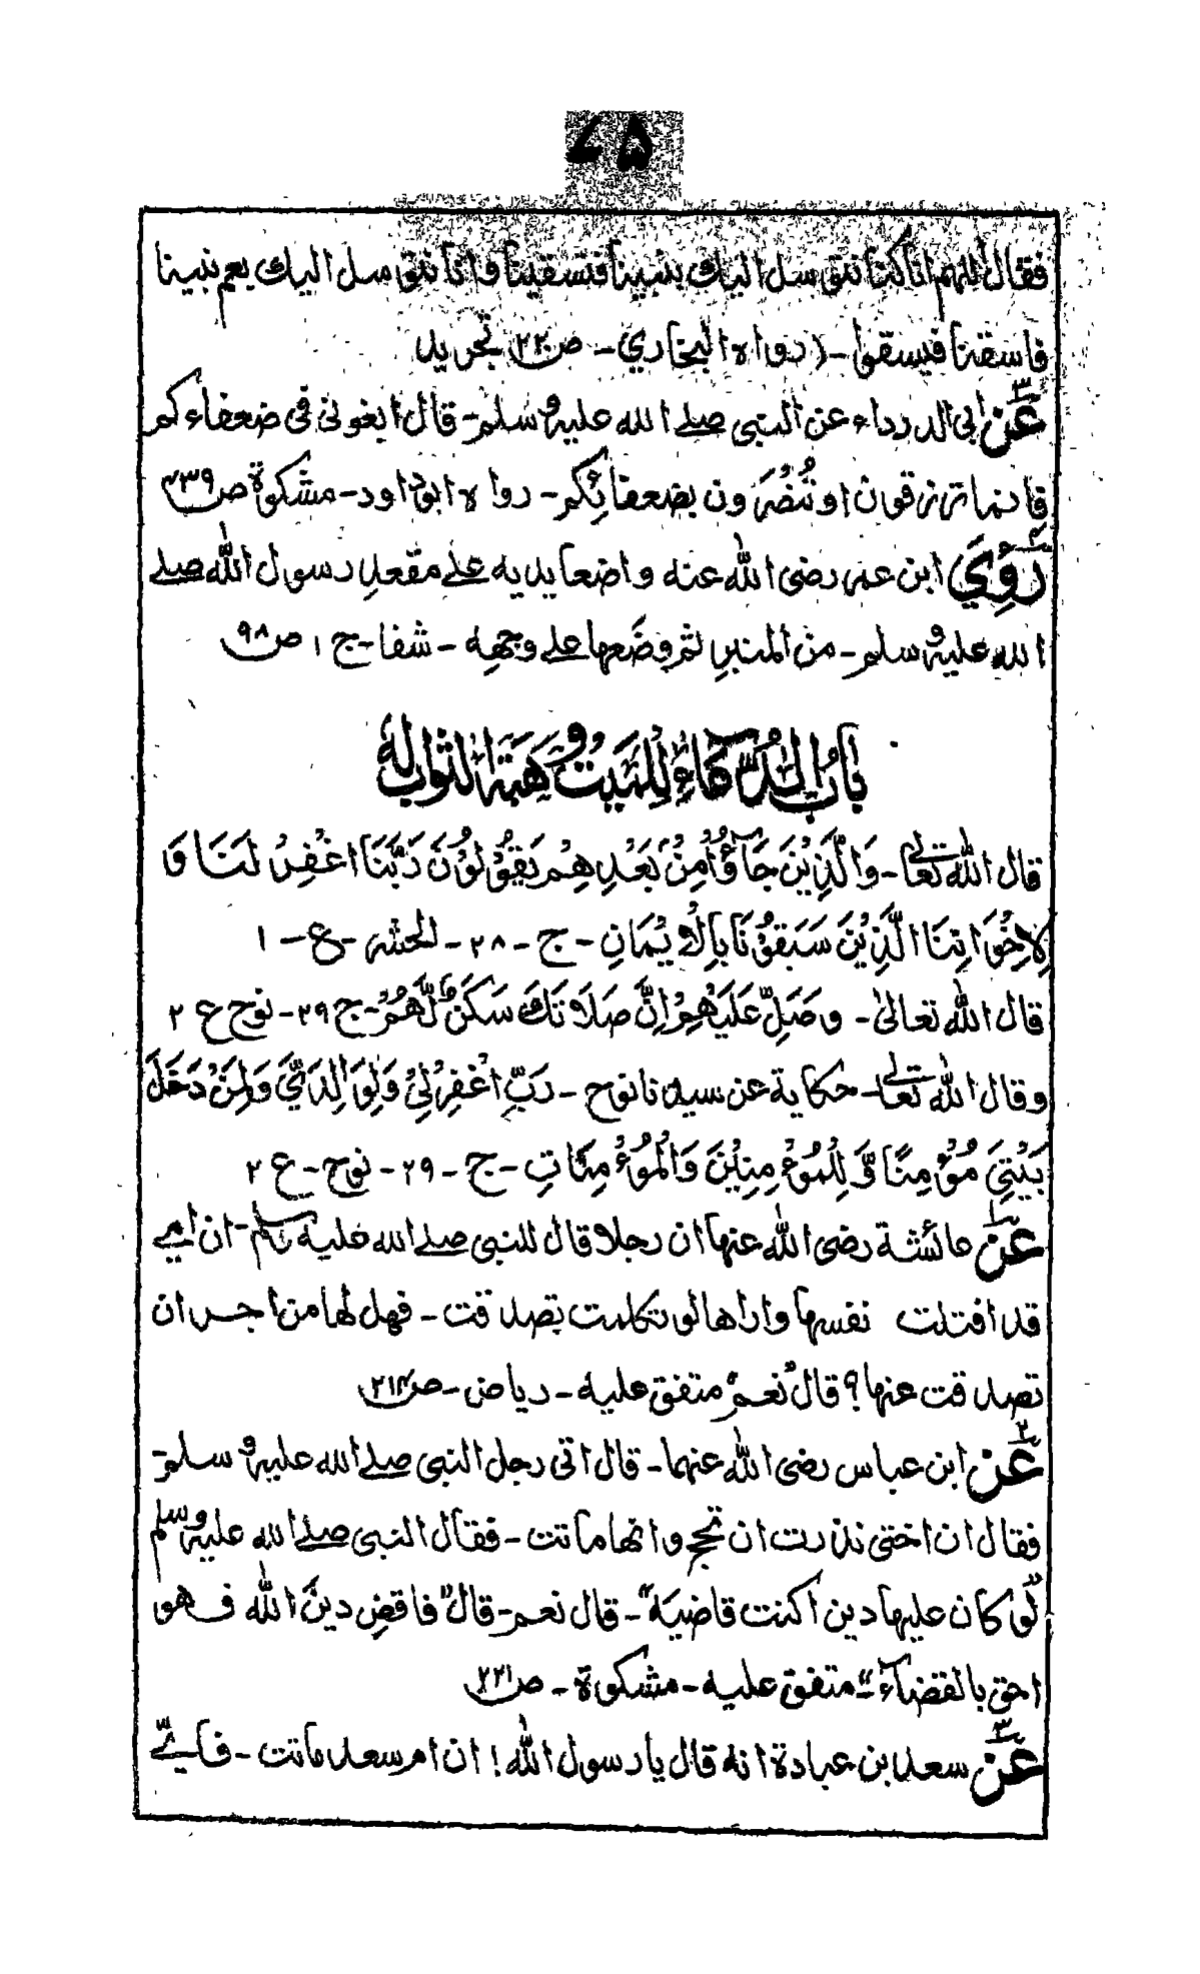 ۷۵
فقال اللهم انا كنا نتوسل اليك بنبينا فتسقينا وانا نتوسل اليك بعم نبينا
فاسقنا فيسقوا - (رواه البخاري) - ص ۲۲ تجريد
۳ عن ابى الدرداء عن النبى صلے الله عليه وسلم - قال ابغونى فى ضعفاءكم
فانما ترزقون او تُنْصَرُون بضعفائِكم - رواه ابوداود - مشكوة ص ۴۳۹
۴ رُوِيَ ابن عمر رضى الله عنه واضعا يديه علے مقعدِ رسول الله صلے
الله عليه وسلم - من المنبرِ ثم وضَعها علے وجهِه - شفا - ج ۱ ص ۹۸
بَابُ الدُّعَاءِ لِلْمَيِّتِ وَهِبَةِ الثواب لهٗ
قال الله تعالے - وَالَّذِيْنَ جَآؤُا مِنْ بَعْدِهِمْ يَقُوْلُوْنَ رَبَّنَا اغْفِرْ لَنَا وَ
لِاِخْوَانِنَا الَّذِيْنَ سَبَقُوْنَا بِالْاِيْمَانِ - ج - ۲۸ - الحشر - ع - ۱
قال الله تعالىٰ - وصَلِّ عَلَيْهِمْ اِنَّ صَلَاتَكَ سَكَنٌ لَّهُمْ - ج ۲۹ - نوح ع ۲
وقال الله تعالے - حكاية عن سيدنا نوح - رَبِّ اغْفِرْ لِىْ وَلِوَالِدَىَّ وَلِمَنْ دَخَلَ
بَيْتِىَ مُؤْمِنًا وَّ لِلْمُؤْمِنِيْنَ وَالْمُؤْمِنَاتِ - ج - ۲۹ - نوح - ع ۲
۱ عن عائشة رضى الله عنها ان رجلا قال للنبى صلے الله عليه وسلم - ان امى
قد افتلت نفسها واراها لو تكلمت تصدقت - فهل لها من اجر ان
تصدقت عنها؟ قال "نعم" متفق عليه - رياض - ص ۲۱۴
۲ عن ابن عباس رضى الله عنهما - قال اتى رجل النبى صلے الله عليه وسلم -
فقال ان اختى نذرت ان تحج وانها ماتت - فقال النبى صلے الله عليه وسلم
"لو كان عليها دين اكنت قاضيه" - قال نعم - قال "فاقضِ دينَ الله فهو
احق بالقضآء" - متفق عليه - مشكوة - ص ۲۲۱
۳ عن سعد بن عبادة انه قال يا رسول الله! ان ام سعد ماتت - فاىّ